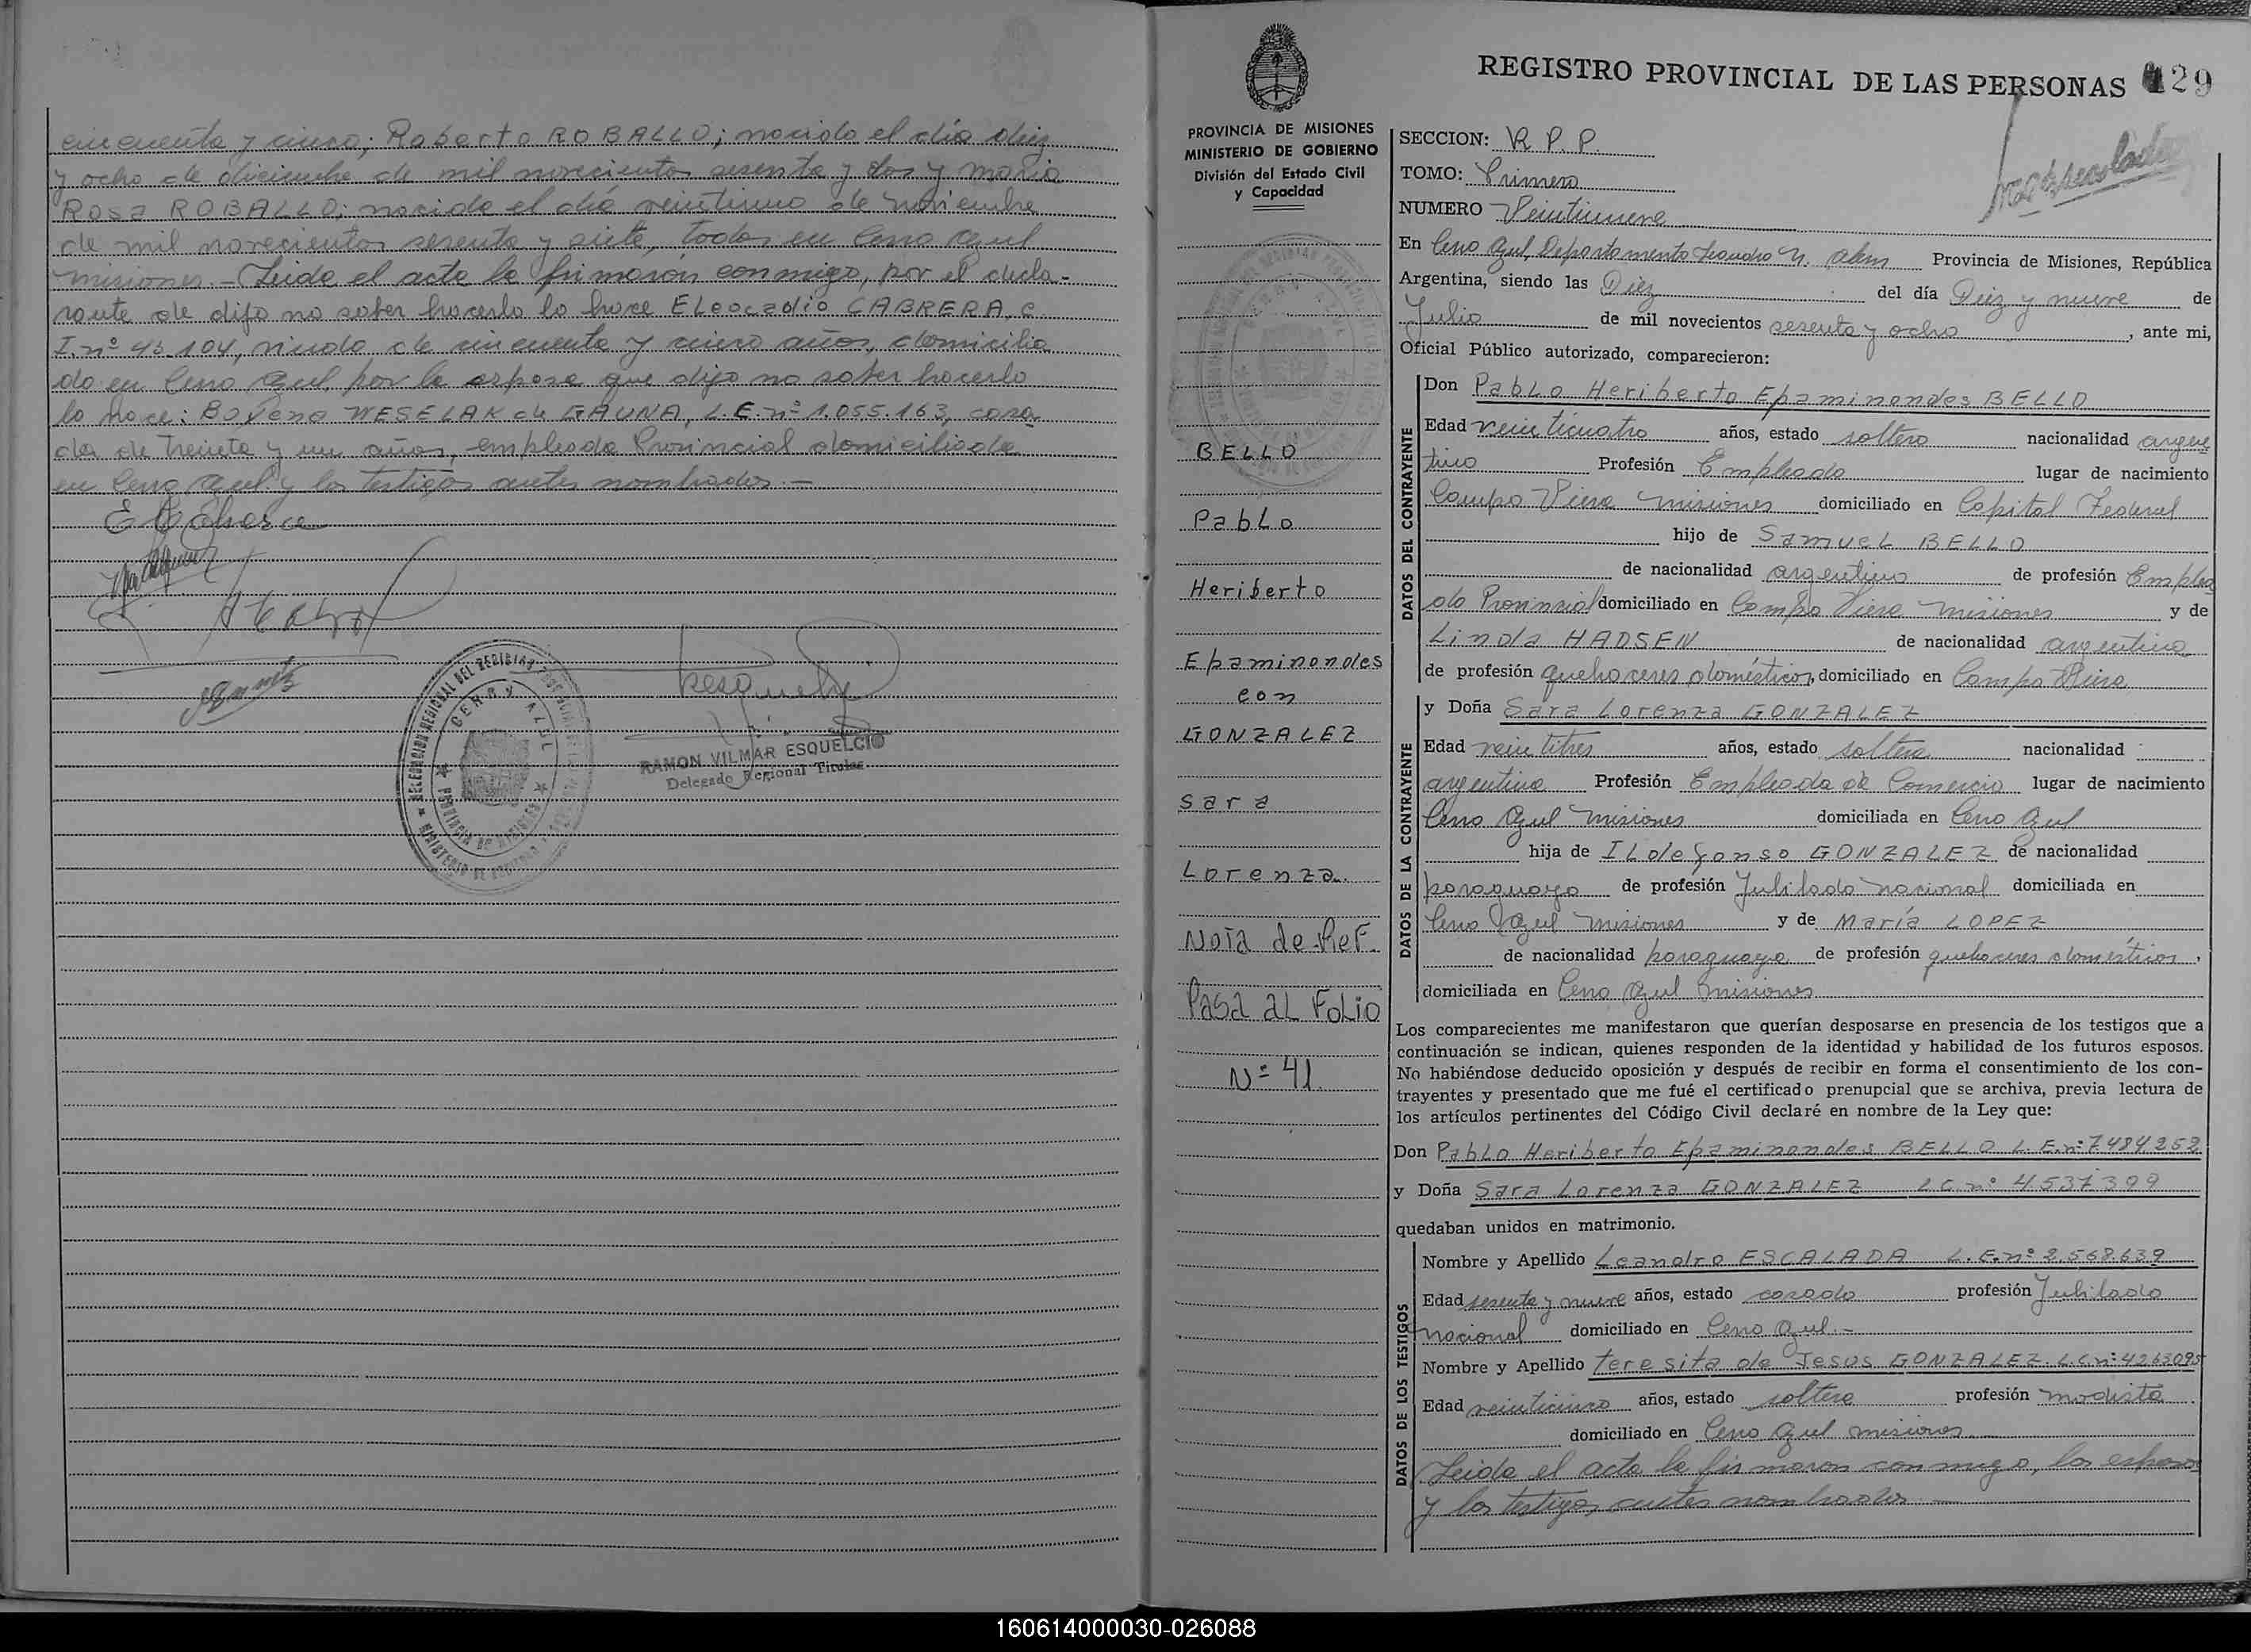 cincuenta y cinco; Roberto ROBALLO; nacido el día diez
y ocho de diciembre de mil novecientos sesenta y dos y María
Rosa ROBALLO; nacida el día veintiuno de noviembre
de mil novecientos sesenta y siete, todos en Cerro Azul
misiones.- Leida el acta la firmaron conmigo, por el decla-
rante de dijo no saber hacerlo lo hace Eleocadio CABRERA, C.
I. nº 43.104, viudo de cincuenta y cinco años, domicilia
do en Cerro Azul, por la esposa que dijo no saber hacerlo
lo hace: Bojena WESELAK de GAUNA, L.C. nº 1.055.163, casa
da de treinta y un años, empleada Provincial domiciliada
en Cerro Azul y los testigos antes nombrados.-
DELEGACION REGIONAL DEL REGISTRO
CERRO AZUL
PROVINCIA DE MISIONES
MINISTERIO DE GOBIERNO
RAMON VILMAR ESQUELCIO
Delegado Regional Titular
REGISTRO PROVINCIAL DE LAS PERSONAS 29
PROVINCIA DE MISIONES
MINISTERIO DE GOBIERNO
División del Estado Civil
y Capacidad
BELLO
Pablo
Heriberto
Epaminondes
con
GONZALEZ
Sara
Lorenza.
Nota de Ref.
Pasa al Folio
Nº 41
SECCION: R. P. P.
TOMO: Primero
NUMERO Veintinueve
En Cerro Azul, Departamento Leandro N. Alem Provincia de Misiones, República
Argentina, siendo las Diez del día Diez y nueve de
Julio de mil novecientos sesenta y ocho, ante mi,
Oficial Público autorizado, comparecieron:
DATOS DEL CONTRAYENTE
Don Pablo Heriberto Epaminondes BELLO
Edad veinticuatro años, estado soltero nacionalidad argen
tino Profesión Empleado lugar de nacimiento
Campo Viera misiones domiciliado en Capital Federal
hijo de Samuel BELLO
de nacionalidad argentino de profesión Emplea
do Provincial domiciliado en Campo Viera misiones y de
Linda HADSEN de nacionalidad argentina
de profesión quehaceres domésticos, domiciliado en Campo Viera
DATOS DE LA CONTRAYENTE
y Doña Sara Lorenza GONZALEZ
Edad veintitres años, estado soltera nacionalidad
argentina Profesión Empleada de Comercio lugar de nacimiento
Cerro Azul misiones domiciliada en Cerro Azul
hija de Ildefonso GONZALEZ de nacionalidad
paraguaya de profesión Jubilado nacional domiciliada en
Cerro Azul misiones y de María LOPEZ
de nacionalidad paraguaya de profesión quehaceres domésticos,
domiciliada en Cerro Azul misiones
Los comparecientes me manifestaron que querían desposarse en presencia de los testigos que a
continuación se indican, quienes responden de la identidad y habilidad de los futuros esposos.
No habiéndose deducido oposición y después de recibir en forma el consentimiento de los con-
trayentes y presentado que me fué el certificado prenupcial que se archiva, previa lectura de
los artículos pertinentes del Código Civil declaré en nombre de la Ley que:
Don Pablo Heriberto Epaminondes BELLO L.E.nº 7484252
y Doña Sara Lorenza GONZALEZ L.C.nº 4.537.399
quedaban unidos en matrimonio.
DATOS DE LOS TESTIGOS
Nombre y Apellido Leandro ESCALADA L.E.nº 2.568.639
Edad sesenta y nueve años, estado casado profesión Jubilado
nacional domiciliado en Cerro Azul.-
Nombre y Apellido Teresita de Jesus GONZALEZ. L.C.nº 4263095
Edad veinticinco años, estado soltera profesión modista
domiciliado en Cerro Azul misiones
Leida el acta la firmaron conmigo, los esposos
y los testigos antes nombrados.-
160614000030-026088